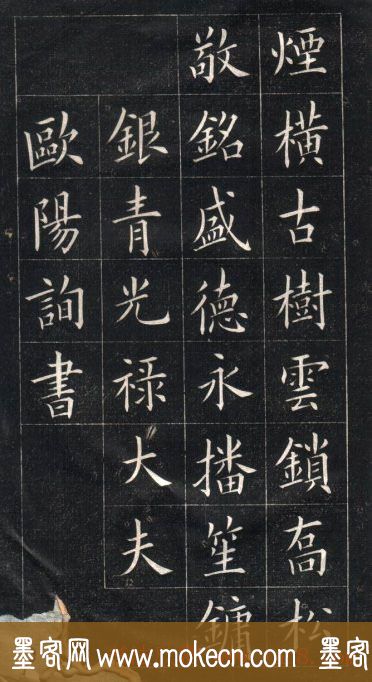 煙橫古樹雲鎖高松
敬銘盛德永播笙鏞
銀青光祿大夫
歐陽詢書
墨客网www.mokecn.com墨客网